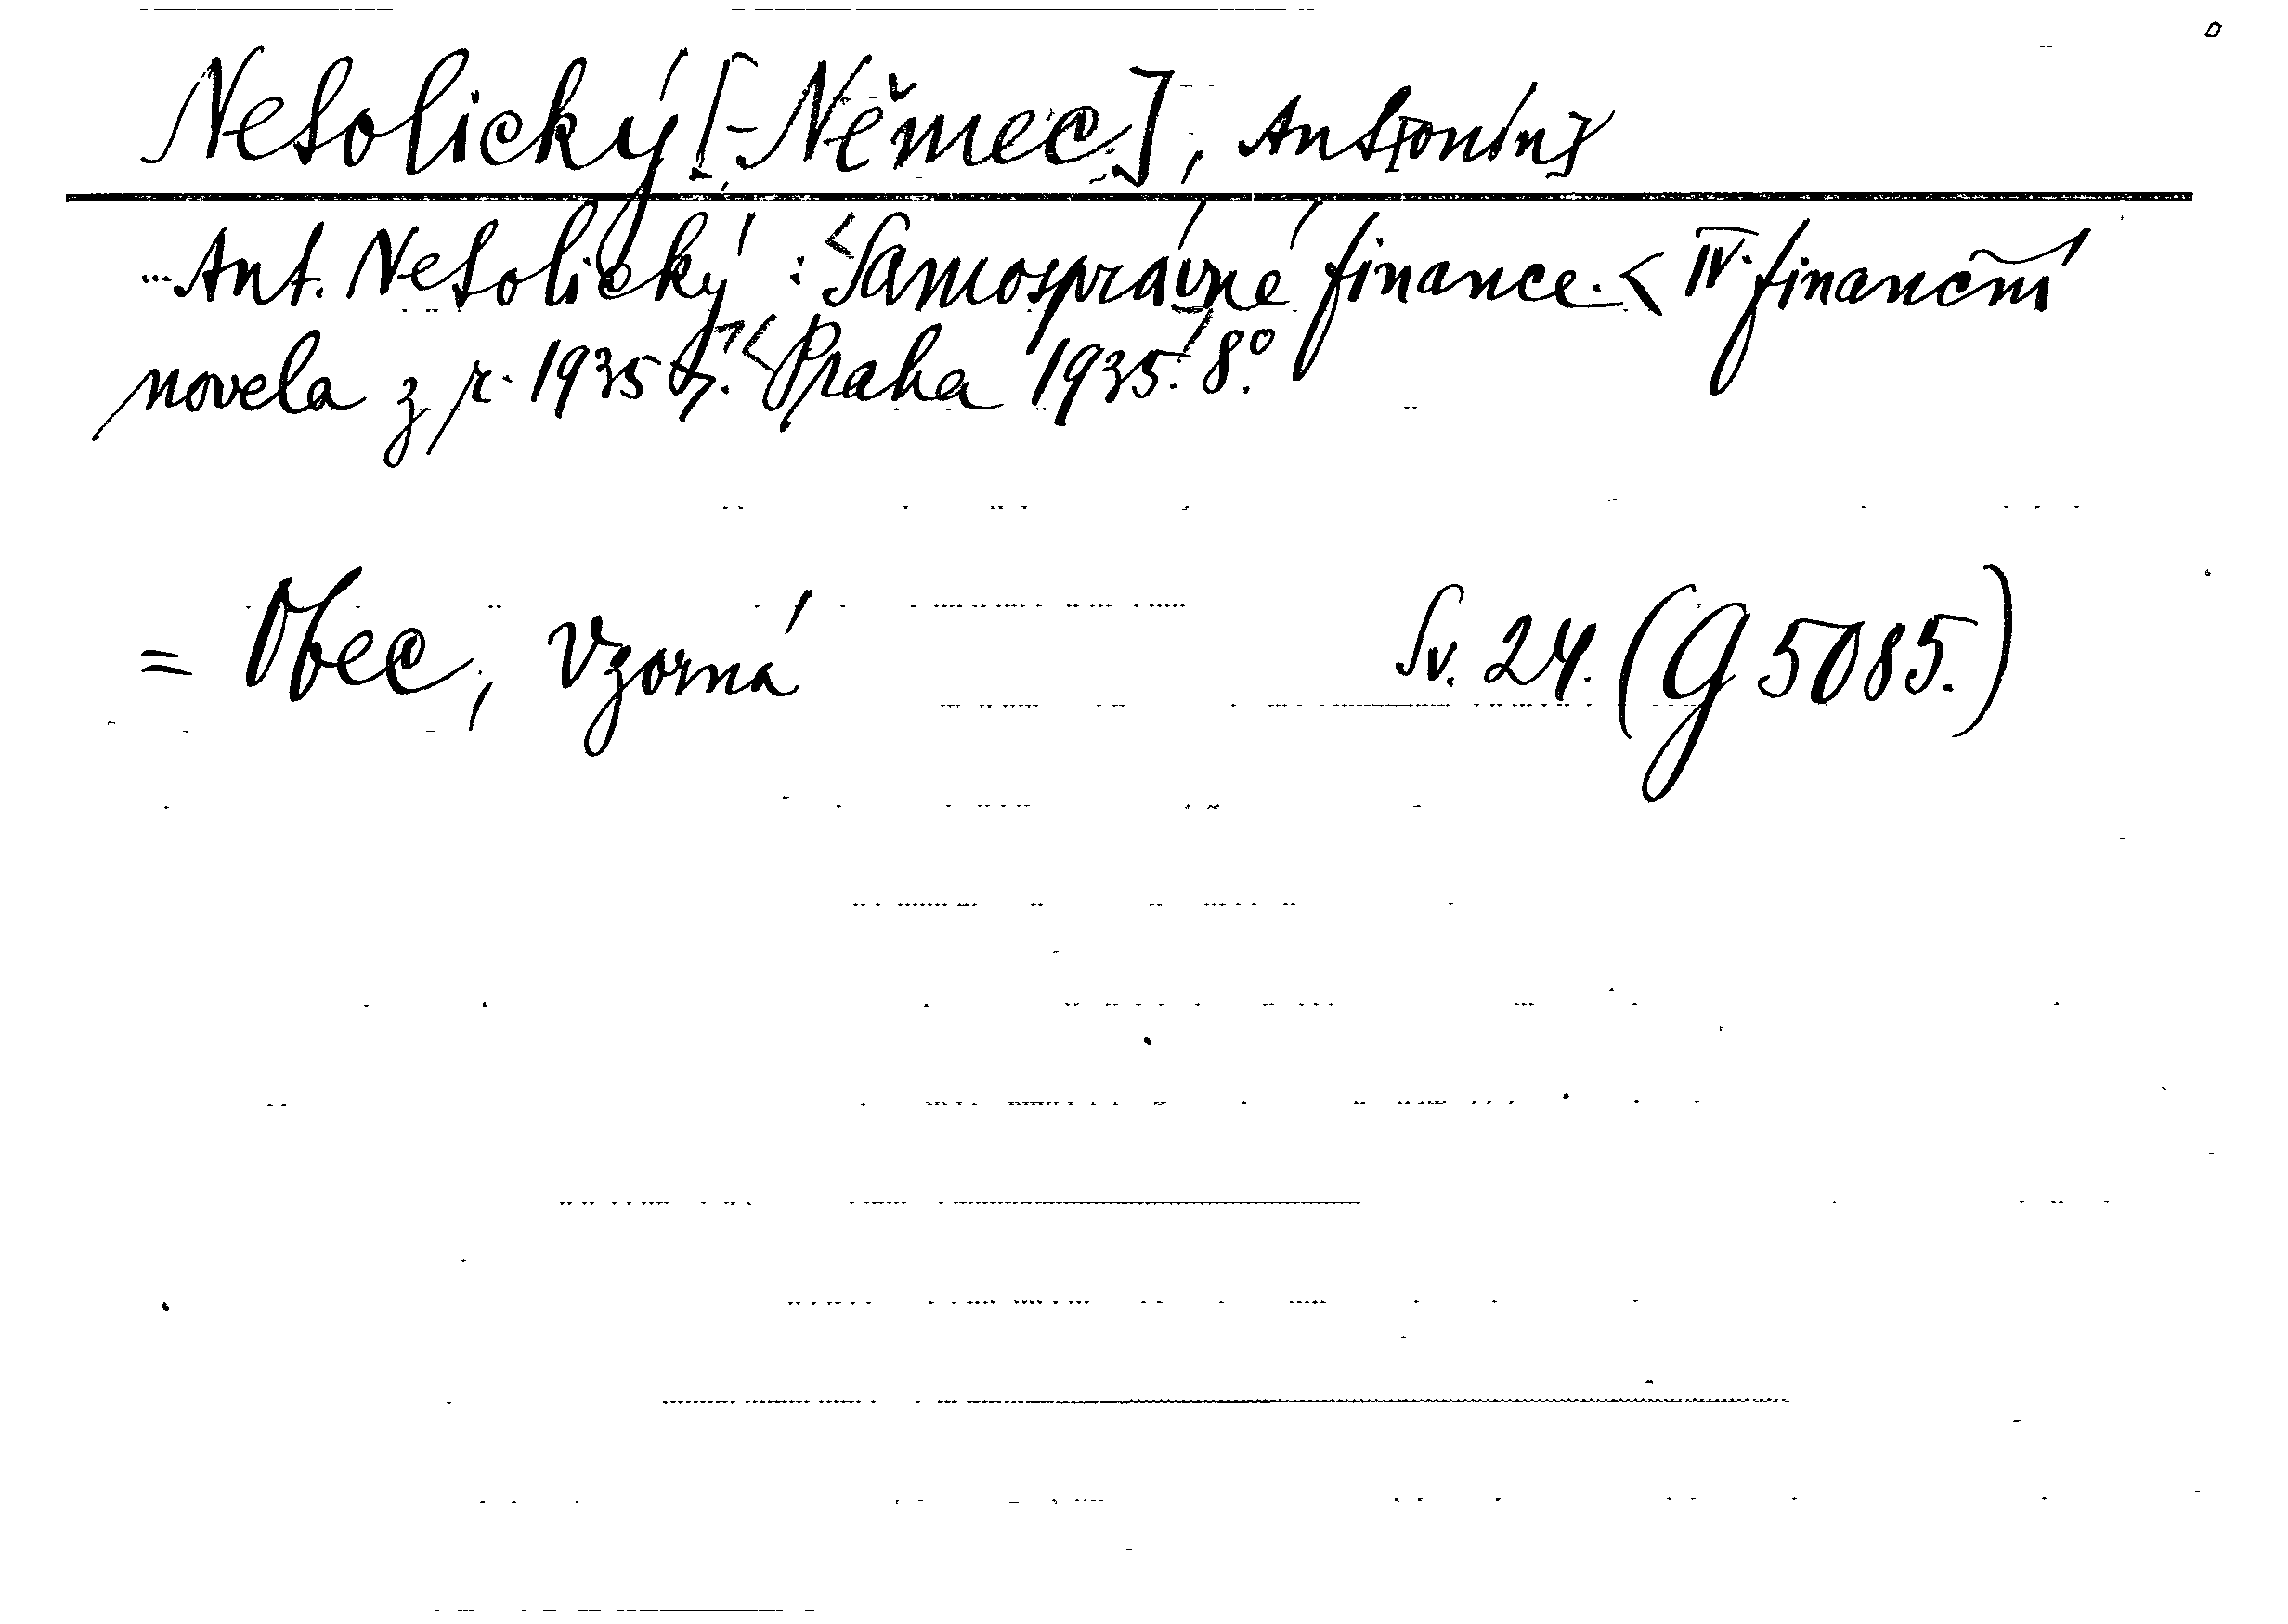 Netolický [-Němec], Ant[onín]
... Ant. Netolický: <Samosprávné finance. < IV. finanční
novela z r. 1935 >. < Praha 1935. 8°.
= Obec, Vzorná Sv. 24. (G 5085.)